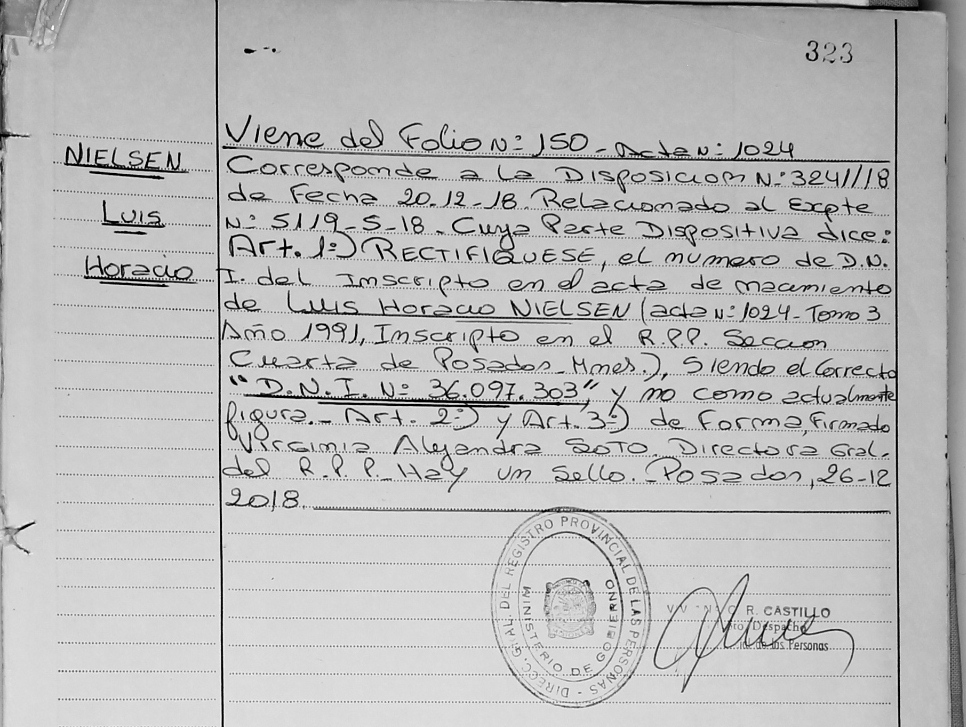 323
Viene del Folio N: 150 - Acta N: 1024
NIELSEN
Luis
Horacio
Corresponde a la Disposicion N: 3241/18
de Fecha 20.12-18. Relacionado al Expte
N: 5119-S-18. Cuya Parte Dispositiva dice:
Art. 1º) RECTIFIQUESE, el numero de D.N.
I. del Inscripto en el acta de nacimiento
de Luis Horacio NIELSEN (acta N: 1024-Tomo 3
Año 1991, Inscripto en el R.P.P. Seccion
Cuarta de Posadas-Mnes.), Siendo el Correcto
"D.N.I. Nº 36.097.303", y no como actualmente
figura.- Art. 2º) y (Art. 3º) de Forma, Firmado
Virginia Alejandra SOTO. Directora Gral.
del R.P.P. Hay un Sello.-Posadas, 26-12
2018.
DIRECC. GRAL. DEL REGISTRO PROVINCIAL DE LAS PERSONAS -
MINISTERIO DE GOBIERNO
R. CASTILLO
Despacho
de las Personas